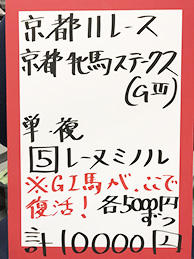 京都11レース
京都牝馬ステークス
(GⅢ)
単複
5 レーヌミノル
※GI馬が、ここで
復活！ 各5000円
ずつ
計10000円